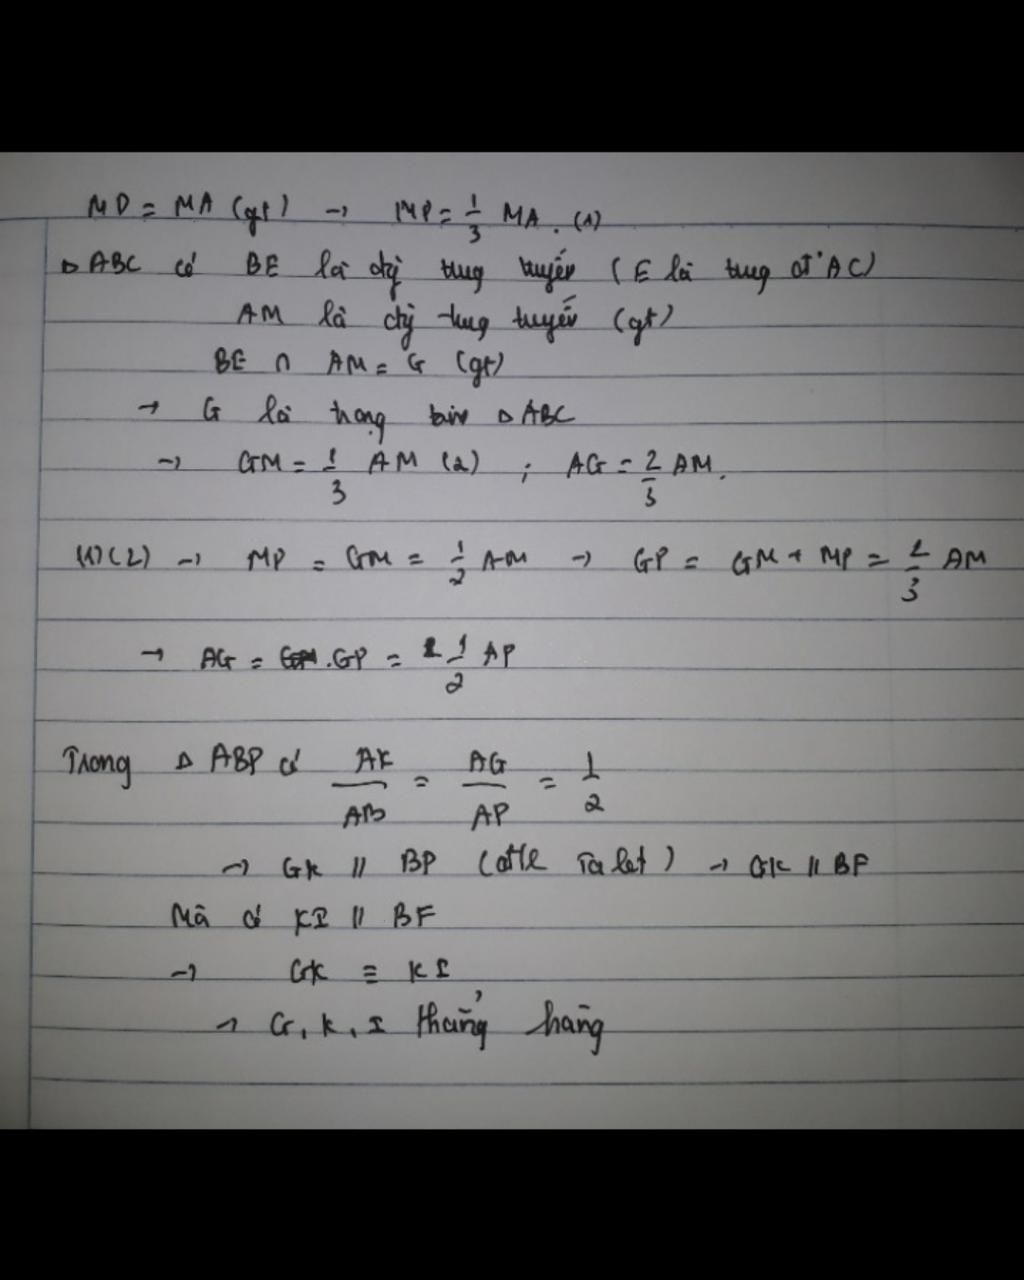 MD = MA (gt) → MP = 1/3 MA. (1)
Δ ABC có BE là đg trung tuyến (E là trung đ' AC)
AM là đg trung tuyến (gt)
BE ∩ AM = G (gt)
→ G là trọng tâm Δ ABC
→ GM = 1/3 AM (2) ; AG = 2/3 AM.
(1)(2) → MP = GM = 1/2 AM → GP = GM + MP = 2/3 AM
→ AG = GP = 1/2 AP
Trong Δ ABP có AK/AB = AG/AP = 1/2
→ GK // BP (đ/l Ta let) → GK // BF
Mà có KI // BF
→ GK ≡ KI
→ G, K, I thẳng hàng